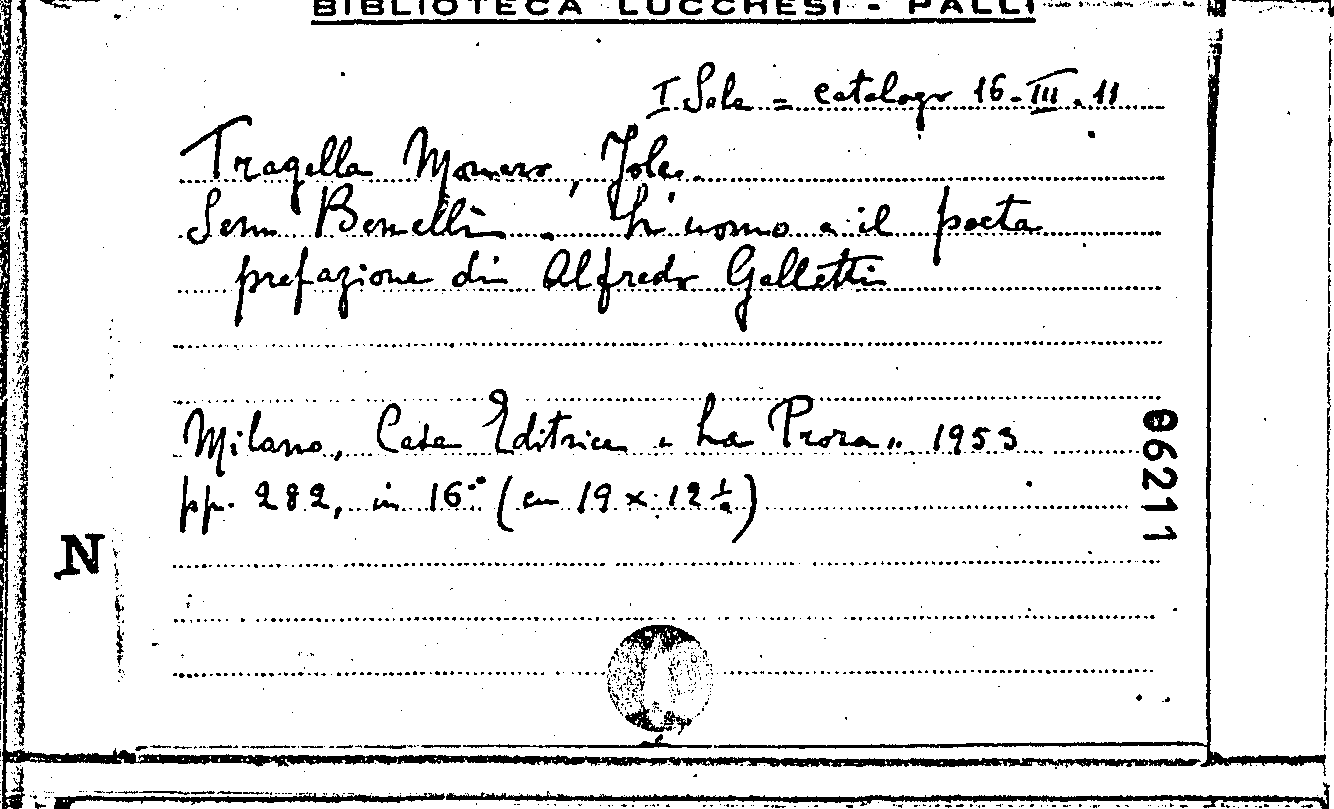 BIBLIOTECA LUCCHESI - PALLI
I Sala = catalogo 16-III.11
Tragella Monaro, Jole.
Sem Benelli. L'uomo e il poeta
prefazione di Alfredo Galletti
Milano, Casa Editrice "La Prora" 1953
pp. 282, in 16° (cm 19 x 12 ½)
06211
N